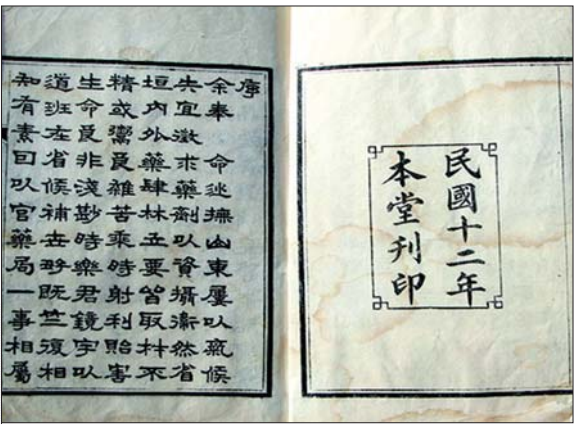 民國十二年
本堂刊印
序
余奉 命巡撫山東屢以氣候
失宜徵求藥劑以資攝衛然省
垣內外藥肆林立要皆取材不
精或鬻良雜苦乘時射利貽害
生命良非淺尠時樂君鏡宇以
道班在省候補世好既竺復相
知有素囙以官藥局一事相屬